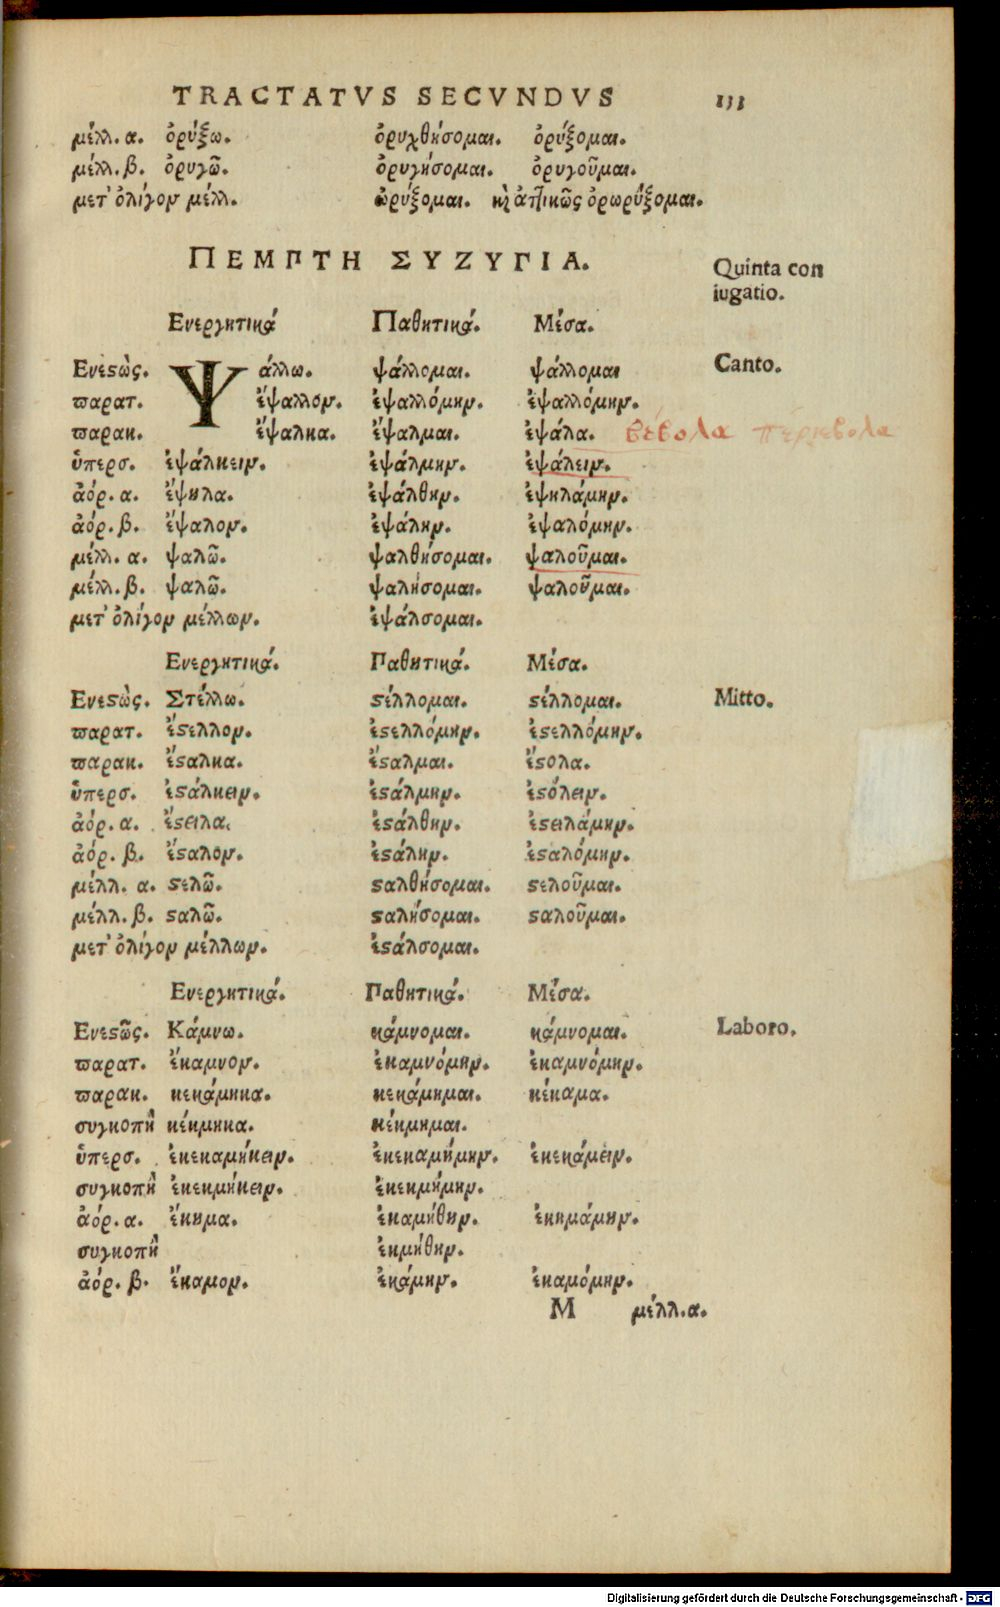 TRACTATVS SECVNDVS 133
μέλλ. α. ὀρύξω. ὀρυχθήσομαι. ὀρύξομαι.
μέλλ. β. ὀρυγῶ. ὀρυγήσομαι. ὀρυγοῦμαι.
μετ' ὀλίγον μέλλ. ὠρύξομαι. καὶ ἀττικῶς ὀρωρύξομαι.
ΠΕΜΠΤΗ ΣΥΖΥΓΙΑ. Quinta con
iugatio.
Ενεργητικά Παθητικά. Μέσα.
Ενεϛὼς. Ψάλλω. ψάλλομαι. ψάλλομαι Canto.
παρατ. ἔψαλλον. ἐψαλλόμην. ἐψαλλόμην.
παρακ. ἔψαλκα. ἔψαλμαι. ἐψάλα. βέβολα
ὑπερσ. ἐψάλκειν. ἐψάλμην. ἐψάλειν.
ἀόρ. α. ἔψηλα. ἐψάλθην. ἐψηλάμην.
ἀόρ. β. ἔψαλον. ἐψάλην. ἐψαλόμην.
μέλλ. α. ψαλῶ. ψαλθήσομαι. ψαλοῦμαι.
μέλλ. β. ψαλῶ. ψαλήσομαι. ψαλοῦμαι.
μετ' ὀλίγον μέλλων. ἐψάλσομαι.
Ενεργητικά. Παθητικά. Μέσα.
Ενεϛὼς. Στέλλω. ϛέλλομαι. ϛέλλομαι. Mitto.
παρατ. ἔϛελλον. ἐϛελλόμην. ἐϛελλόμην.
παρακ. ἔϛαλκα. ἔϛαλμαι. ἔϛολα.
ὑπερσ. ἐϛάλκειν. ἐϛάλμην. ἐϛόλειν.
ἀόρ. α. ἔϛειλα. ἐϛάλθην. ἐϛειλάμην.
ἀόρ. β. ἔϛαλον. ἐϛάλην. ἐϛαλόμην.
μέλλ. α. ϛελῶ. ϛαλθήσομαι. ϛελοῦμαι.
μέλλ. β. ϛαλῶ. ϛαλήσομαι. ϛαλοῦμαι.
μετ' ὀλίγον μέλλων. ἐϛάλσομαι.
Ενεργητικά. Παθητικά. Μέσα.
Ενεϛῶς. Κάμνω. κάμνομαι. κάμνομαι. Laboro.
παρατ. ἔκαμνον. ἐκαμνόμην. ἐκαμνόμην.
παρακ. κεκάμηκα. κεκάμημαι. κέκαμα.
συγκοπῆ κέκμηκα. κέκμημαι.
ὑπερσ. ἐκεκαμήκειν. ἐκεκαμήμην. ἐκεκάμειν.
συγκοπῆ ἐκεκμήκειν. ἐκεκμήμην.
ἀόρ. α. ἔκημα. ἐκαμήθην. ἐκημάμην.
συγκοπῆ ἐκμήθην.
ἀόρ. β. ἔκαμον. ἐκάμην. ἐκαμόμην.
M μέλλ. α.
Digitalisierung gefördert durch die Deutsche Forschungsgemeinschaft - DFG